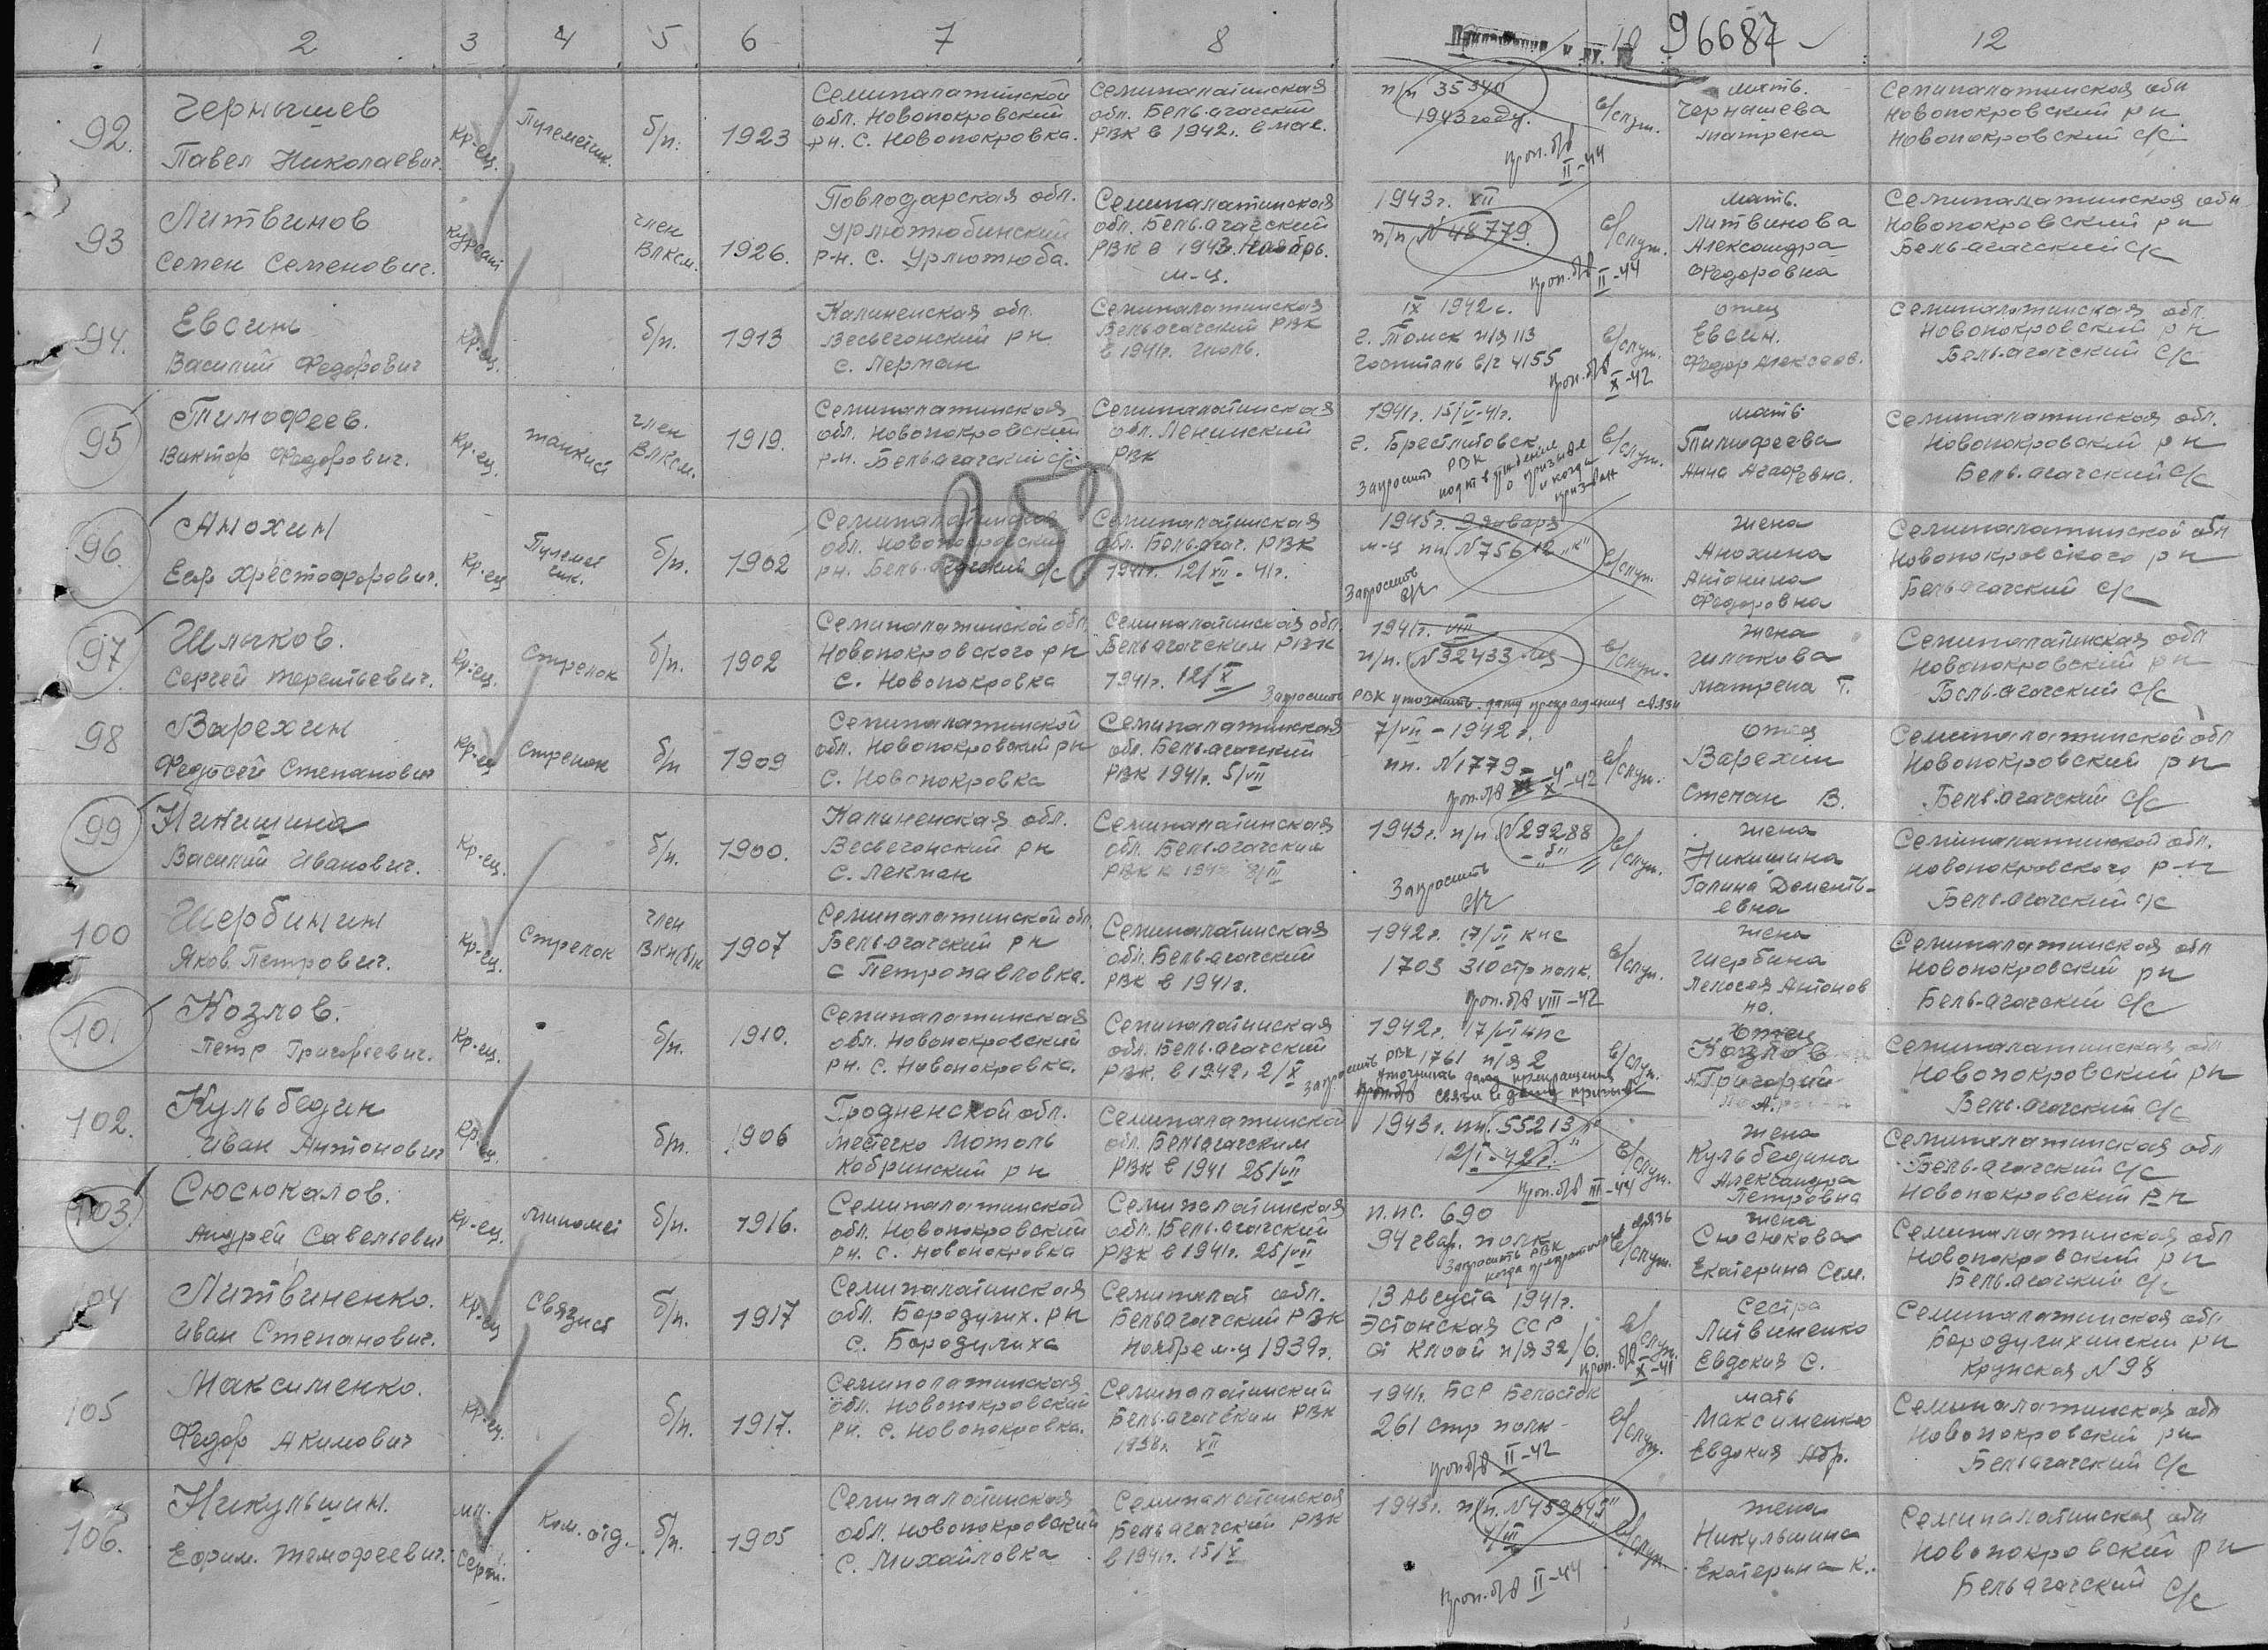 1 2 3 4 5 6 7 8 10 96687 12
92. Чернышев Павел Николаевич. Кр-ец. Пулеметчик. б/п. 1923
Семипалатинской обл. Новопокровский рн. с. Новопокровка.
Семипалатинская обл. Бель-агачский РВК в 1942г. в мае.
п/п 35340 1943 году.
проп. б/в II-44
в/служ.
мать. Чернышева Матрена
Семипалатинская обл Новопокровский рн Новопокровский с/с
93 Литвинов Семен Семенович. Курсант член ВЛКСМ. 1926.
Повлодарская обл. Урлютюбинский р-н. с. Урлютюба.
Семипалатинская обл. Бель-агачский РВК в 1943. Ноябрь. м-ц.
1943г. XII п/п N 48779.
проп. б/в II-44
в/служ.
мать. Литвинова Александра Федоровна
Семипалатинская обл Новопокровский рн Бель-агачский с/с
94. Евсин Василий Федорович Кр-ец. б/п. 1913
Калиненская обл. Весьегонский рн с. Лерман
Семипалатинская Бельагачский РВК в 1941г. июль.
IX 1942г. г. Томск п/я 113 госпиталь в/ч 4155
проп. б/в X-42
в/служ.
отец Евсин. Федор Алексеев.
Семипалатинская обл. Новопокровский рн Бельагачский с/с
95 Тимофеев. Виктор Федорович. Кр-ец. танкист член ВЛКСМ. 1919.
Семипалатинская обл. Новопокровский рн. Бельагачский с/с
Семипалатинская обл. Ленинский РВК
1941г. 15/V-41г. г. Брестлитовск
Запросить РВК подтверждения о призыве и когда призван
в/служ.
мать Тимофеева Анна Агафевна.
Семипалатинская обл. Новопокровский рн Бель-агачский с/с
252
96. Анохин Еф. Хрестофорович. Кр-ец Пулеметчик. б/п. 1902
Семипалатинская обл. Новопокровский рн. Бель-агачский с/с
Семипалатинская обл. Бель-агач. РВК 1941г. 12/XII-41г.
1945г. 9 января м-ц пп N 75612 "к"
Запросить с/с
в/служ.
жена Анохина Антонина Федоровна
Семипалатинской обл Новопокровского рн Бельагачский с/с
97 Шлыков. Сергей Терентьевич. Кр-ец. Стрелок б/п. 1902
Семипалатинской обл. Новопокровского рн с. Новопокровка
Семипалатинская обл. Бельагачским РВК 1941г. 12/X
1941г. VIII п/п. N 32433
Запросить РВК уточнить дату прекращения связи
в/служ.
жена Шлыкова Матрена Т.
Семипалатинская обл Новопокровский рн Бель-агачский с/с
98 Варехин Федосей Степанович Кр-ец Стрелок б/п 1909
Семипалатинской обл. Новопокровский рн с. Новопокровка
Семипалатинская обл. Бель-агачский РВК 1941г. 5/VII
7/VII-1942г. пп. N 1779
проп. б/в X-42
в/служ.
отец Варехин Степан В.
Семипалатинской обл Новопокровский рн Бельагачский с/с
99 Никишина Василий Иванович. Кр-ец. б/п. 1900.
Калиненская обл. Весьегонский рн с. Лекман
Семипалатинская обл. Бельагачским РВК
1943г. п/п N 29288 "б"
Запросить с/с
в/служ.
жена Никишина Галина Дементьевна
Семипалатинской обл. Новопокровского р-н Бельагачский с/с
100 Щербинин Яков Петрович. Кр-ец. Стрелок член ВКП(б) 1907
Семипалатинской обл. Бельагачский рн с Петропавловка.
Семипалатинская обл. Бельагачский РВК в 1941г.
1942г. 17/VI ппс 1703 310 стр полк.
проп. б/в VIII-42
в/служ.
жена Щербина Антоновна.
Семипалатинская обл Новопокровский рн Бель-агачский с/с
101 Козлов. Петр Григорьевич. Кр-ец. б/п. 1910.
Семипалатинская обл. Новопокровский рн. с. Новопокровка.
Семипалатинская обл. Бель-агачский РВК. в 1942г. 2/X
1942г. 17/VI ппс 1761 п/я 2
Запросить РВК уточнить дату прекращения связи и дату призыва
в/служ.
отец Козлов Григорий А.
Семипалатинская обл Новопокровский рн Бель-агачский с/с
102. Кульбедин Иван Антонович Кр-ец. б/п. 1906
Гродненской обл. местечко Мотоль Кобринский рн
Семипалатинской обл. Бельагачским РВК в 1941 25/VII
1943г. пп. 55213 12/I-42г.
проп. б/в III-44
в/служ.
жена Кульбедина Александра Петровна
Семипалатинская обл Бель-агачский с/с Новопокровский р-н
103. Сюсюкалов. Андрей Савельевич Кр-ец. миномет б/п. 1916.
Семипалатинской обл. Новопокровский рн. с. Новопокровка
Семипалатинская обл. Бель-агачский РВК в 1941г. 25/VII
п.пс. 690 94 гвар. полк
Запросить РВК когда прекратилась связь
в/служ.
жена Сюсюкова Екатерина Сем.
Семипалатинская обл Новопокровский рн Бельагачский с/с
104 Литвиненко. Иван Степанович. Кр-ец Связист б/п. 1917
Семипалатинская обл. Бородулих. рн с. Бородулиха
Семипалат обл. Бельагачский РВК Ноябре м-ц 1939г.
13 Августа 1941г. Эстонская ССР п/я 32/6.
проп. б/в X-41
в/служ.
Сестра Литвиненко Евдокия С.
Семипалатинская обл Бородулихинский рн N 98
105 Максименко. Федор Акимович Кр-ец. б/п. 1917.
Семипалатинская обл. Новопокровский рн. с. Новопокровка.
Семипалатинский Бельагачским РВК 1938г. XII
1941г. БСР Белосток 261 стр полк
проп. б/в II-42
в/служ.
мать Максименко Евдокия Абр.
Семипалатинская обл Новопокровский рн Бельагачский с/с
106. Никульшин. Ефрим. Темофеевич. мл. Серж. Ком. отд. б/п. 1905
Семипалатинская обл. Новопокровский с. Михайловка
Семипалатинская Бельагачский РВК в 1941г. 15/X
1943г. п/п. 1/III
проп. б/в II-44
в/служ.
жена Никульшина Екатерина К.
Семипалатинская обл Новопокровский рн Бельагачский с/с